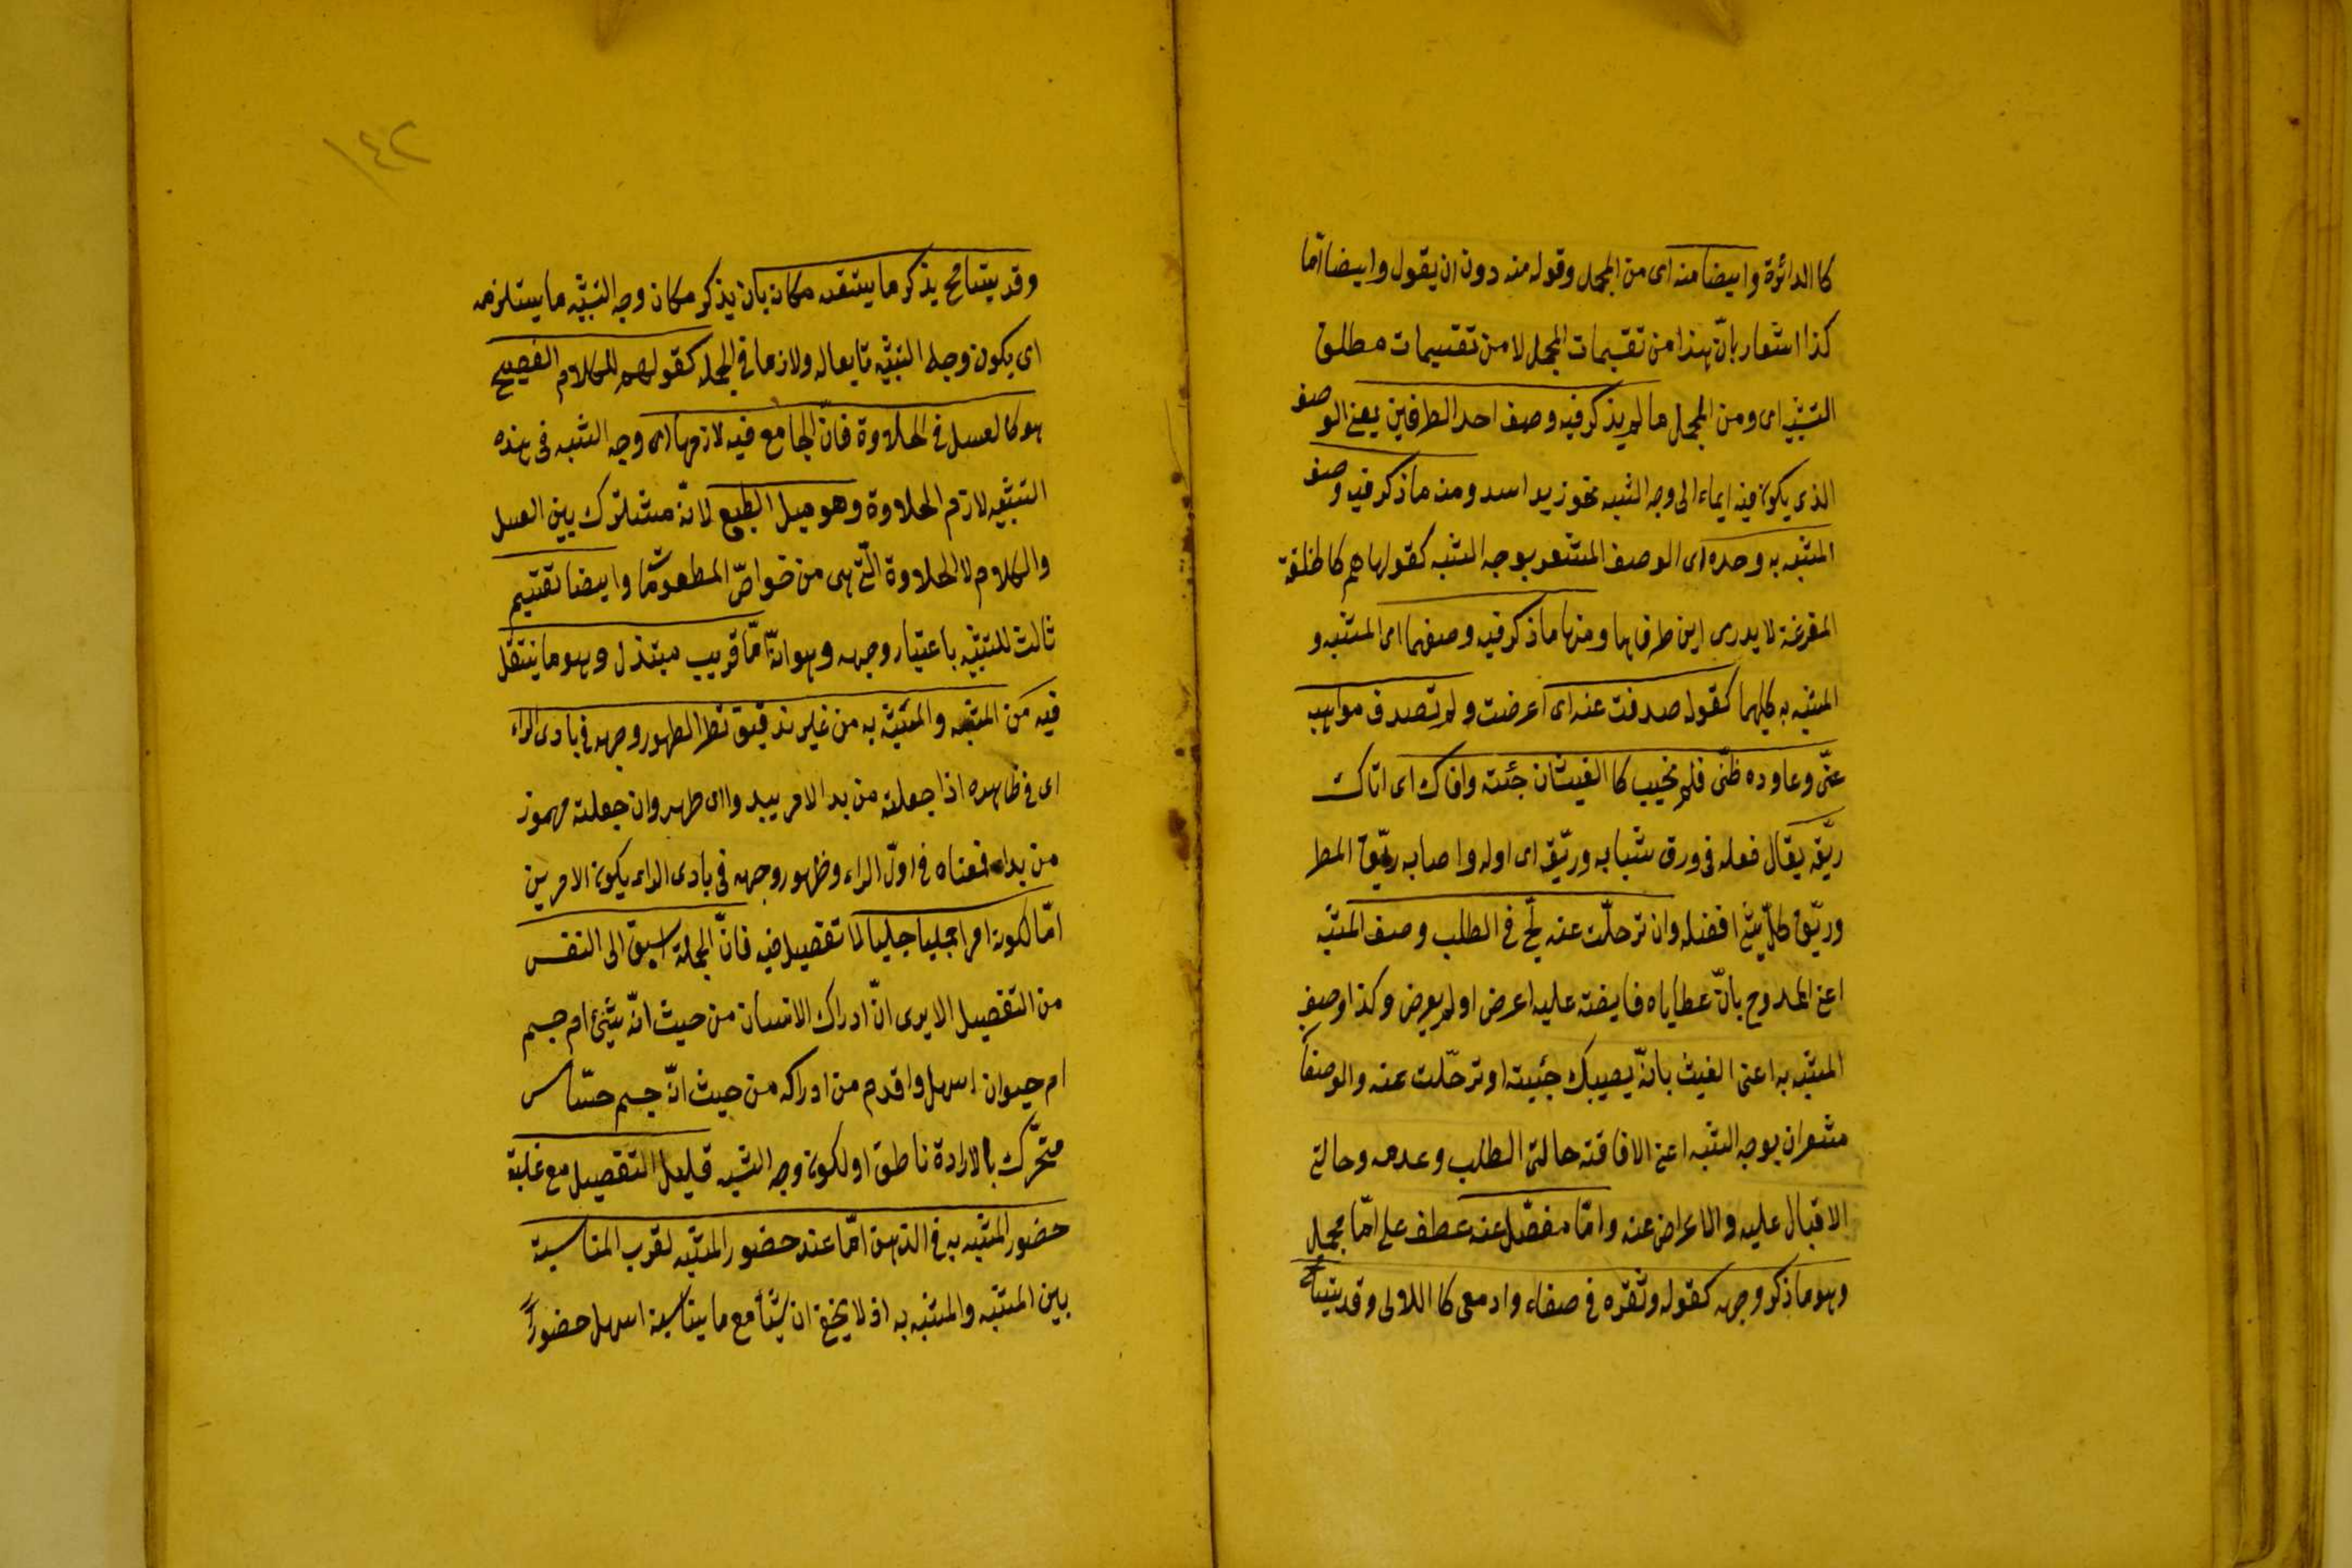 كا الدائرة وايضا منه اى من المجمل وقوله منه دون ان يقول وايضا امّا
كذا اشعار بانّ هذا من تقسيمات المجمل لا من تقسيمات مطلق
التشبيه اى ومن المجمل ما لم يذكر فيه وصف احد الطرفين يعنى الوصف
الذى يكون فيه ايماء الى وجه الشبه نحو زيد اسد ومنه ما ذكر فيه وصف
المشبه به وحده اى الوصف المشعر بوجه الشبه كقولها هم كالحلقة
المفرغة لا يدرى اين طرفاها ومنها ما ذكر فيه وصفهما اى المشبه و
المشبه به كليهما كقوله صدفت عنه اى اعرضت ولم تصدف مواهبه
عنّى وعاوده ظنّى فلم يخيب كا الغيث ان جئته وافاك اى اتاك
ريّقه يقال فعله فى ورق شبابه وريّقه اى اوله واصابه ريّق المطر
وريّق كلّ شئ افضله وان ترحلّت عنه لجّ فى الطلب وصف المشبّه
اعنى الممدوح بانّ عطاياه فايضة عليه اعرض او لم يعرض وكذا وصف
المشبه به اعنى الغيث بانّه يصيبك جئيته او ترحّلت عنه والوصفان
مشعران بوجه الشبه اعنى الافاقة حالتى الطلب وعدمه وحالتى
الاقبال عليه والاعراض عنه وامّا مفصّل عنه عطف على امّا مجمل
وهو ما ذكر وجهه كقوله وثغره فى صفاء وادمعى كا اللالى وقد يتسامح
١٤٢
وقد يتسامح بذكر ما يستتبعه مكانه بان يذكر مكان وجه التشبيه ما يستلزمه
اى يكون وجه التشبيه تابعا له ولازما فى الجملة كقولهم للكلام الفصيح
هو كالعسل فى الحلاوة فانّ الجامع فيه لازمها اى وجه الشبه فى هذه
التشبيه لازم الحلاوة وهو ميل الطبع لانّه مشترك بين العسل
والكلام لا الحلاوة الّتى هى من خواصّ المطعومّا وايضا تقسيم
ثالث للتشبيه باعتبار وجهه وهو انّه امّا قريب مبتذل وهو ما ينتقل
فيه من المشبه والمشبه به من غير تدقيق نظر لظهور وجهه فى بادى الراء
اى فى ظاهره اذا جعلته من بدا الامر يبدوا اى ظهر وان جعلته مهموز
من بداء فمعناه فى اوّل الراء وظهور وجهه فى بادى الراى يكون الامرين
امّا لكونه امرا جمليا جليا لما تفصيل فيه فانّ الجملة اسبق الى النفس
من التفصيل الا يرى انّ ادراك الانسان من حيث انّه شئ ام جسم
ام حيوان اسهل واقدم من ادراكه من حيث انّه جسم حسّاس
متحرّك بالارادة ناطق او لكون وجه الشبه قليل التفصيل مع غلبة
حضور المشبه به فى الذهن امّا عند حضور المشبه لقرب المناسبة
بين المشبه والمشبه به اذ لا يخفى ان شئا مع ما يناسبه اسهل حضورًا